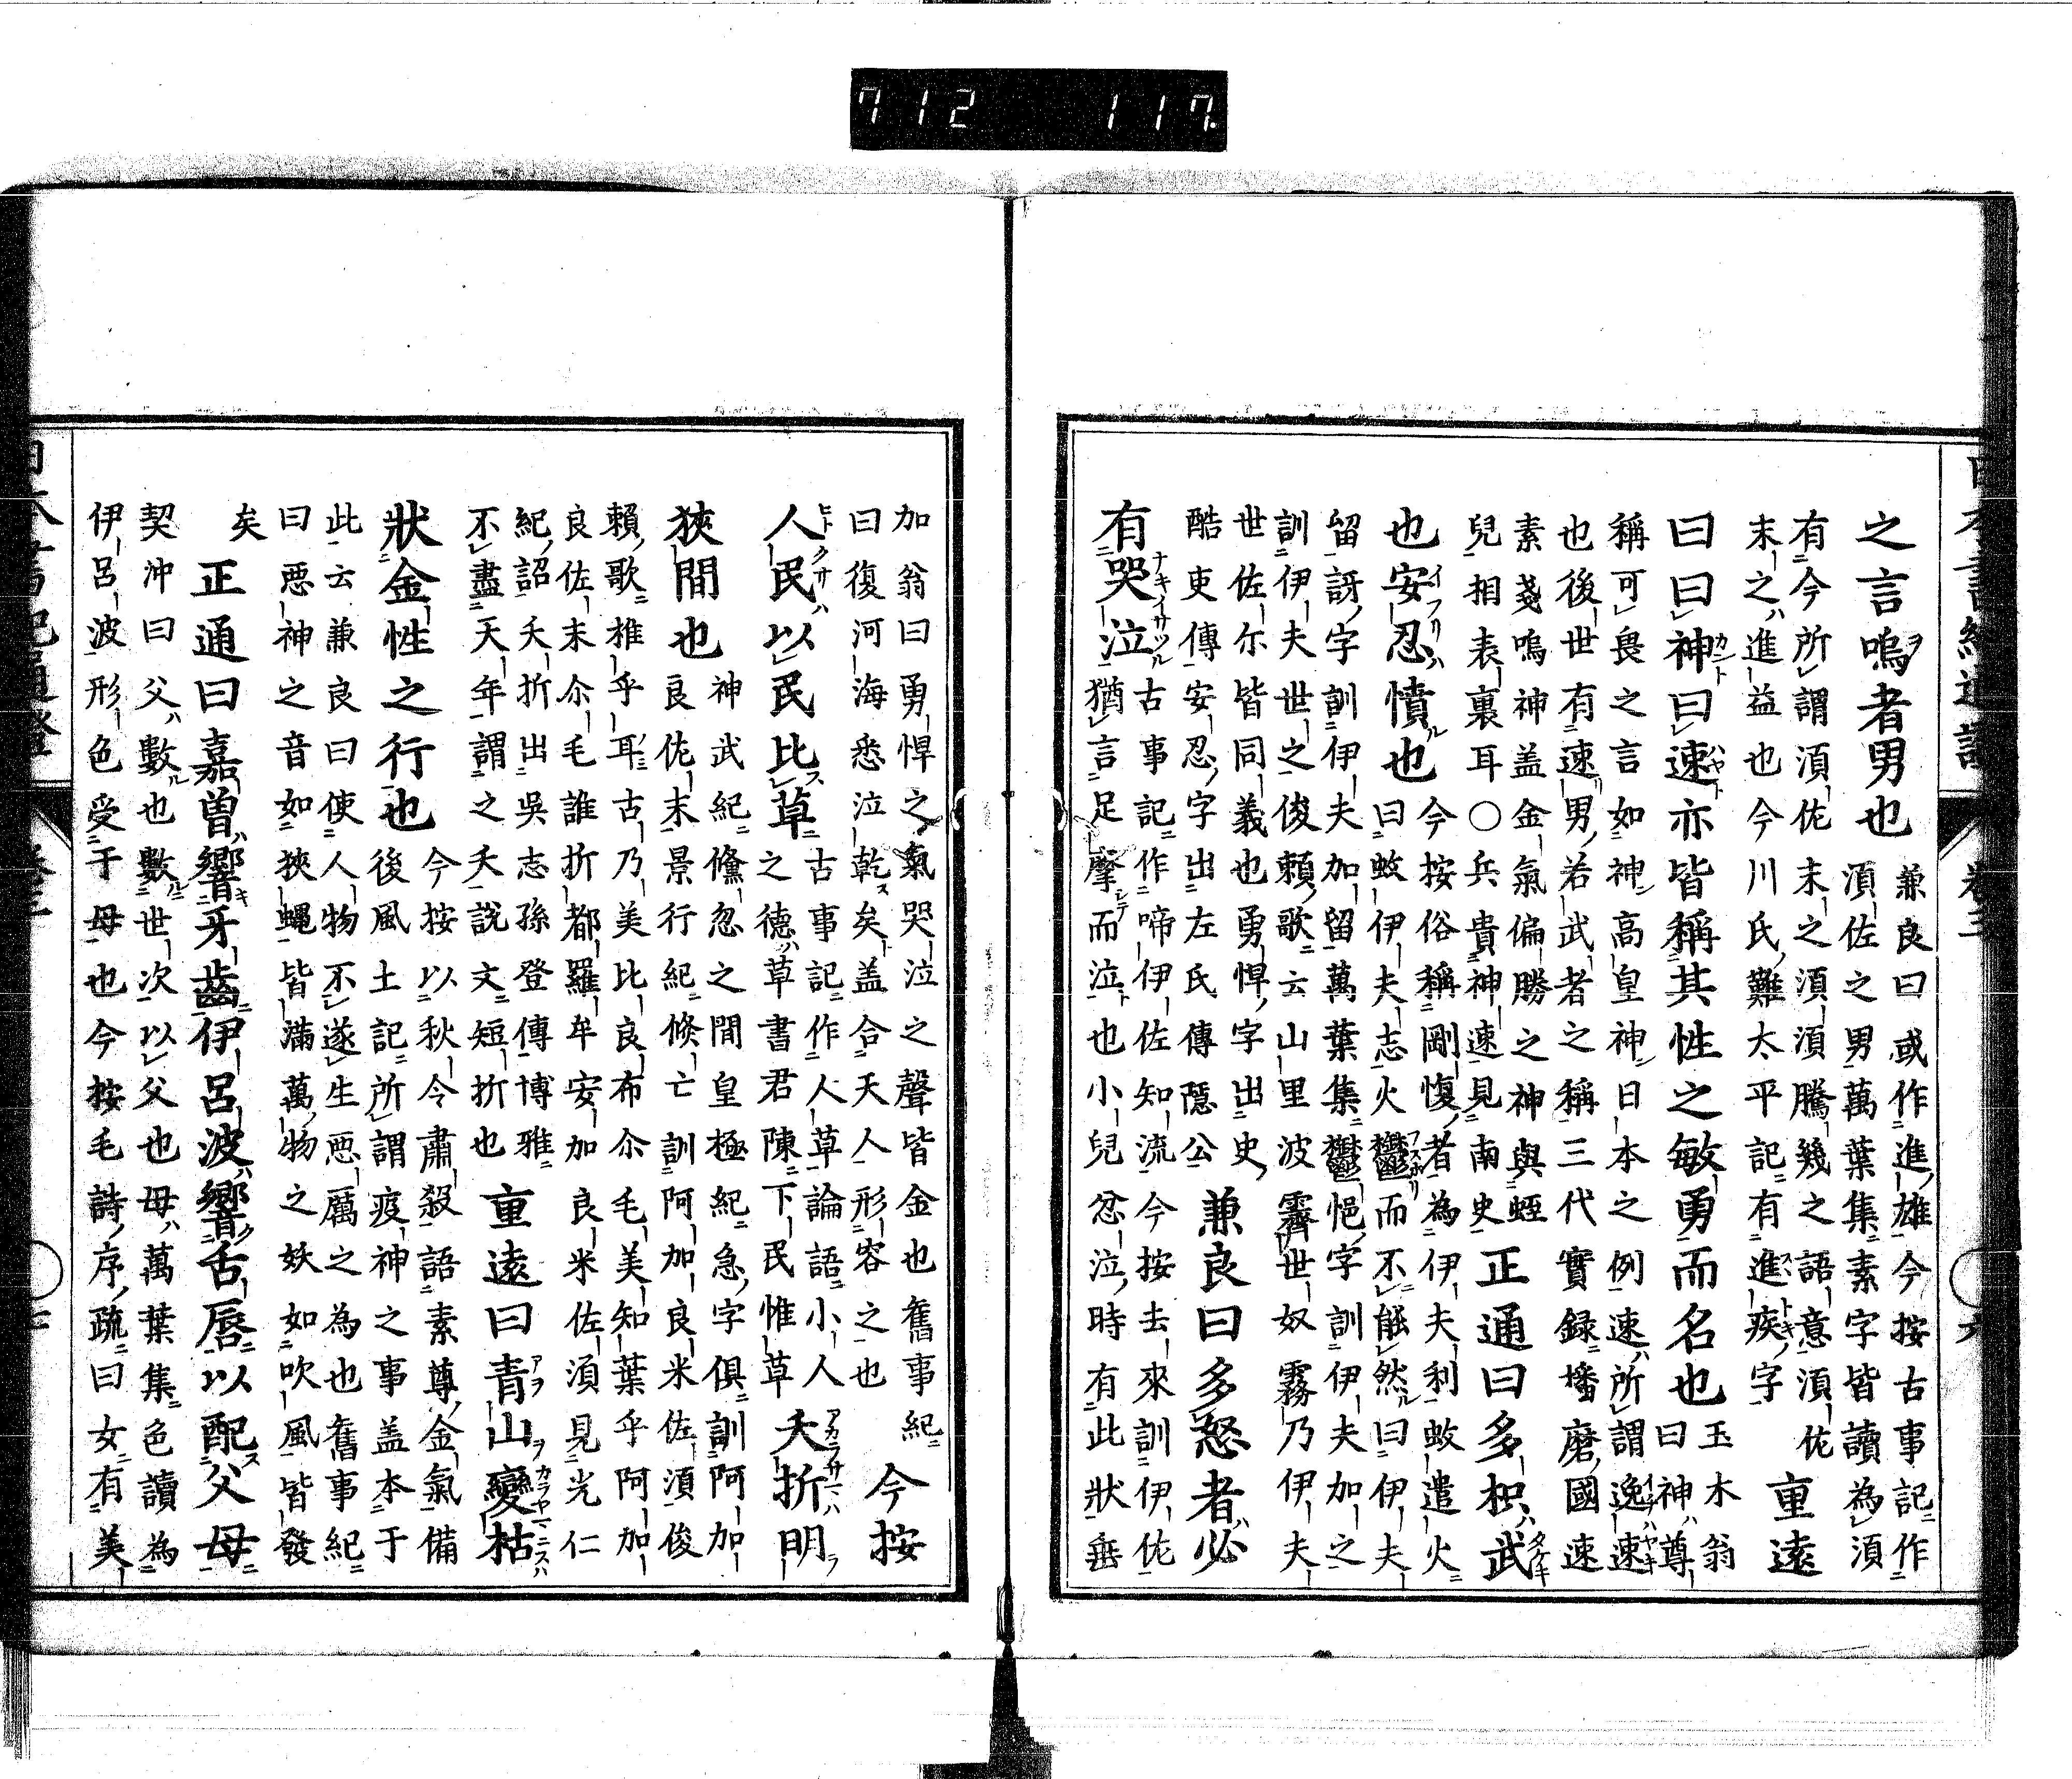 712 117
之言嗚者男也
兼良曰或作進雄今按古事記作
須佐之男萬葉集素字皆讀為須
有今所謂須佐末之須須騰幾之語意須佐
末之進益也今川氏難太平記有進疾字
重遠
曰曰神曰速亦皆稱其性之敏勇而名也
玉木翁
曰神尊
稱可畏之言如神高皇神日本之例速所謂逸速
也後世有速男若武者之稱三代實録播磨國速
素戔嗚神盖金氣偏勝之神與蛭
兒相表裏耳○兵貴神速見南史
正通曰多枳武
也安忍憤也
今按俗稱剛愎者為伊夫利蚊遣火
曰蚊伊夫志火鬱而不能然曰伊夫
留訝字訓伊夫加留萬葉集鬱悒字訓伊夫加之
訓伊夫世之俊頼歌云山里波霽世奴霧乃伊夫
世佐尓皆同義也勇悍字出史
酷吏傳安忍字出左氏傳隱公
兼良曰多怒者必
有哭泣
古事記作啼伊佐知流今按去來訓伊佐
猶言足摩而泣也小兒忿泣時有此狀垂
加翁曰勇悍之氣哭泣之聲皆金也舊事紀
曰復河海悉泣乾矣盖合天人形容之也
今按
人民以民比草
古事記作人草論語小人
之德草書君陳下民惟草
夭折明
狹間也
神武紀儵忽之間皇極紀急字俱訓阿加
良佐末景行紀倏亡訓阿加良米佐須俊
頼歌推乎耳古乃美比良布尓毛美知葉乎阿加
良佐末尓毛誰折都羅牟安加良米佐須見光仁
紀詔夭折出吳志孫登傳博雅
不盡天年謂之夭說文短折也
重遠曰青山變枯
狀金性之行也
今按以秋令肅殺語素尊金氣備
後風土記所謂疫神之事盖本于
此云兼良曰使人物不遂生惡厲之為也舊事紀
曰惡神之音如狹蠅皆滿萬物之妖如吹風皆發
矣
正通曰嘉曽響牙齒伊呂波響舌唇以配父母
契冲曰父數也數世次以父也母萬葉集色讀為
伊呂波形色受于母也今按毛詩序疏曰女有美